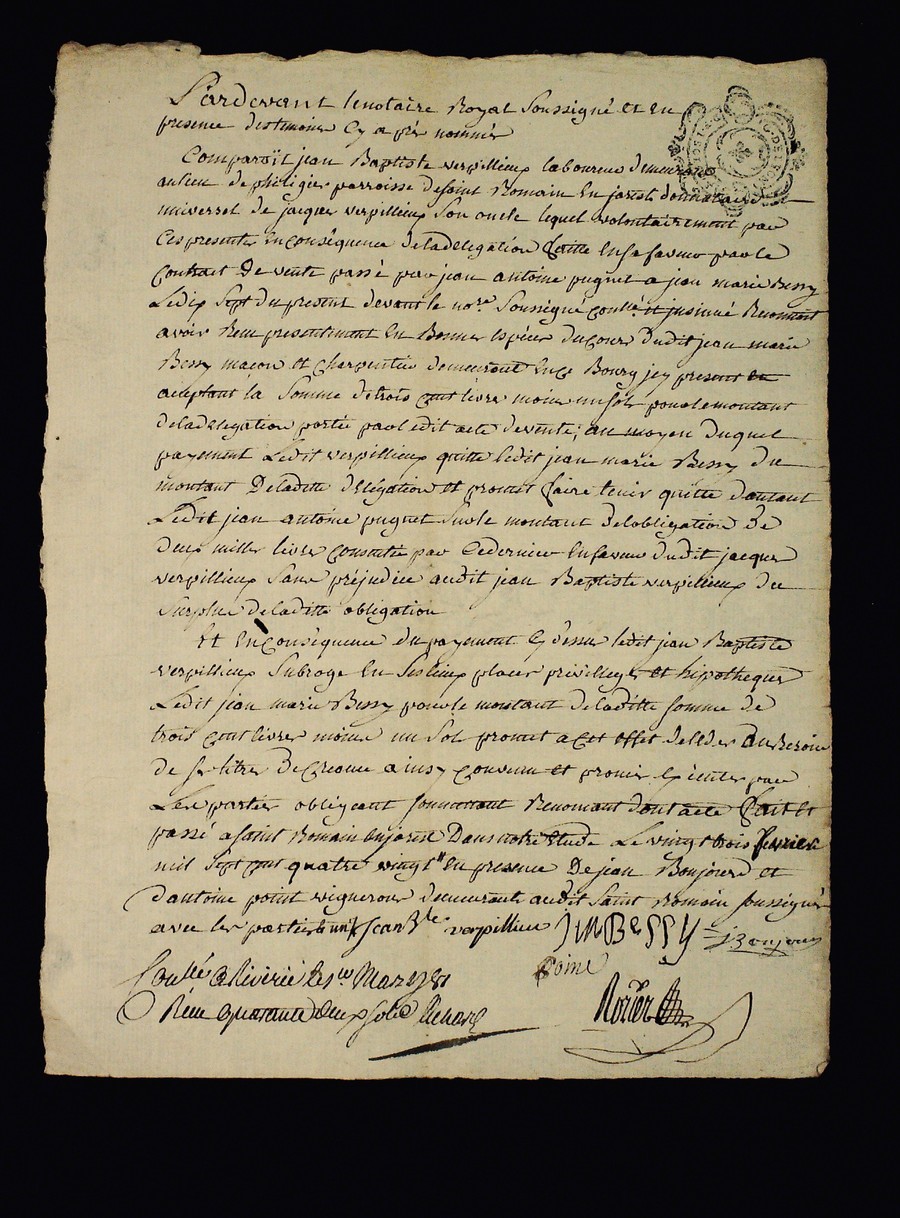 Pardevant lenotaire Royal Soussigné et En
presence destmoins Cy aprés nommés
Comparoït jean Baptiste verpillieux laboureur demeurant
aulieu de philigier parroisse desaint Romain En jarest donnataire
universel de jacques verpillieux Son oncle lequel volontairement par
Ces presentes Enconséquence deladelegation faitte Ensafaveur parle
contrat De vente passé par jean antoine pugnet a jean marie Bessy
Ledix Sept du present devant le nore. Soussigné contlé. et jnsinué Reconnoit
avoir Reçu presentement En Bonnes Espéces ducours dudit jean marie
Bessy maçon et charpentier demeurant Ence Bourg jcy present et
aceptant la Somme detrois cent livres moins un sol pourlemontant
deladelégation portée parledit acte devente; au moyen duquel
payement Ledit verpillieux quitte ledit jean marie Bessy du
montant Deladitte délégation et promet faire tenir quitte dautant
Ledit jean antoine pugnet Surle montant delobligation de
deux mille livres consentie par Cedernier Enfaveur dudit jacques
verpillieux Sans préjudice audit jean Baptiste verpillieux du
Surplus deladitte obligation
Et Enconséquence du payement Cy dessus ledit jean Baptiste
verpillieux Subroge En Ses lieux places privilleges et hipotheques
Ledit jean marie Bessy pourle montant deladitte somme de
trois cent livres moins un Sol promet acet effet delaider auBesoin
de ses titres De creance ainsy convenu et promis Executer par
Les parties obligeant soumettant Renoncant dont acte fait et
passé asaint Romain Enjarest Dans notre Etude Le vingt trois fevrier
mil Sept cent quatre vingt un En presence De jean Bonjour et
dantoine point vignerons demeurants audit Saint Romain soussignés
avec les parties jean Bte verpillieux JMBESSY jBonjour
poine
Contlé aRiverie le 1er Mars 1781
Reçu quarante deux sols Renard